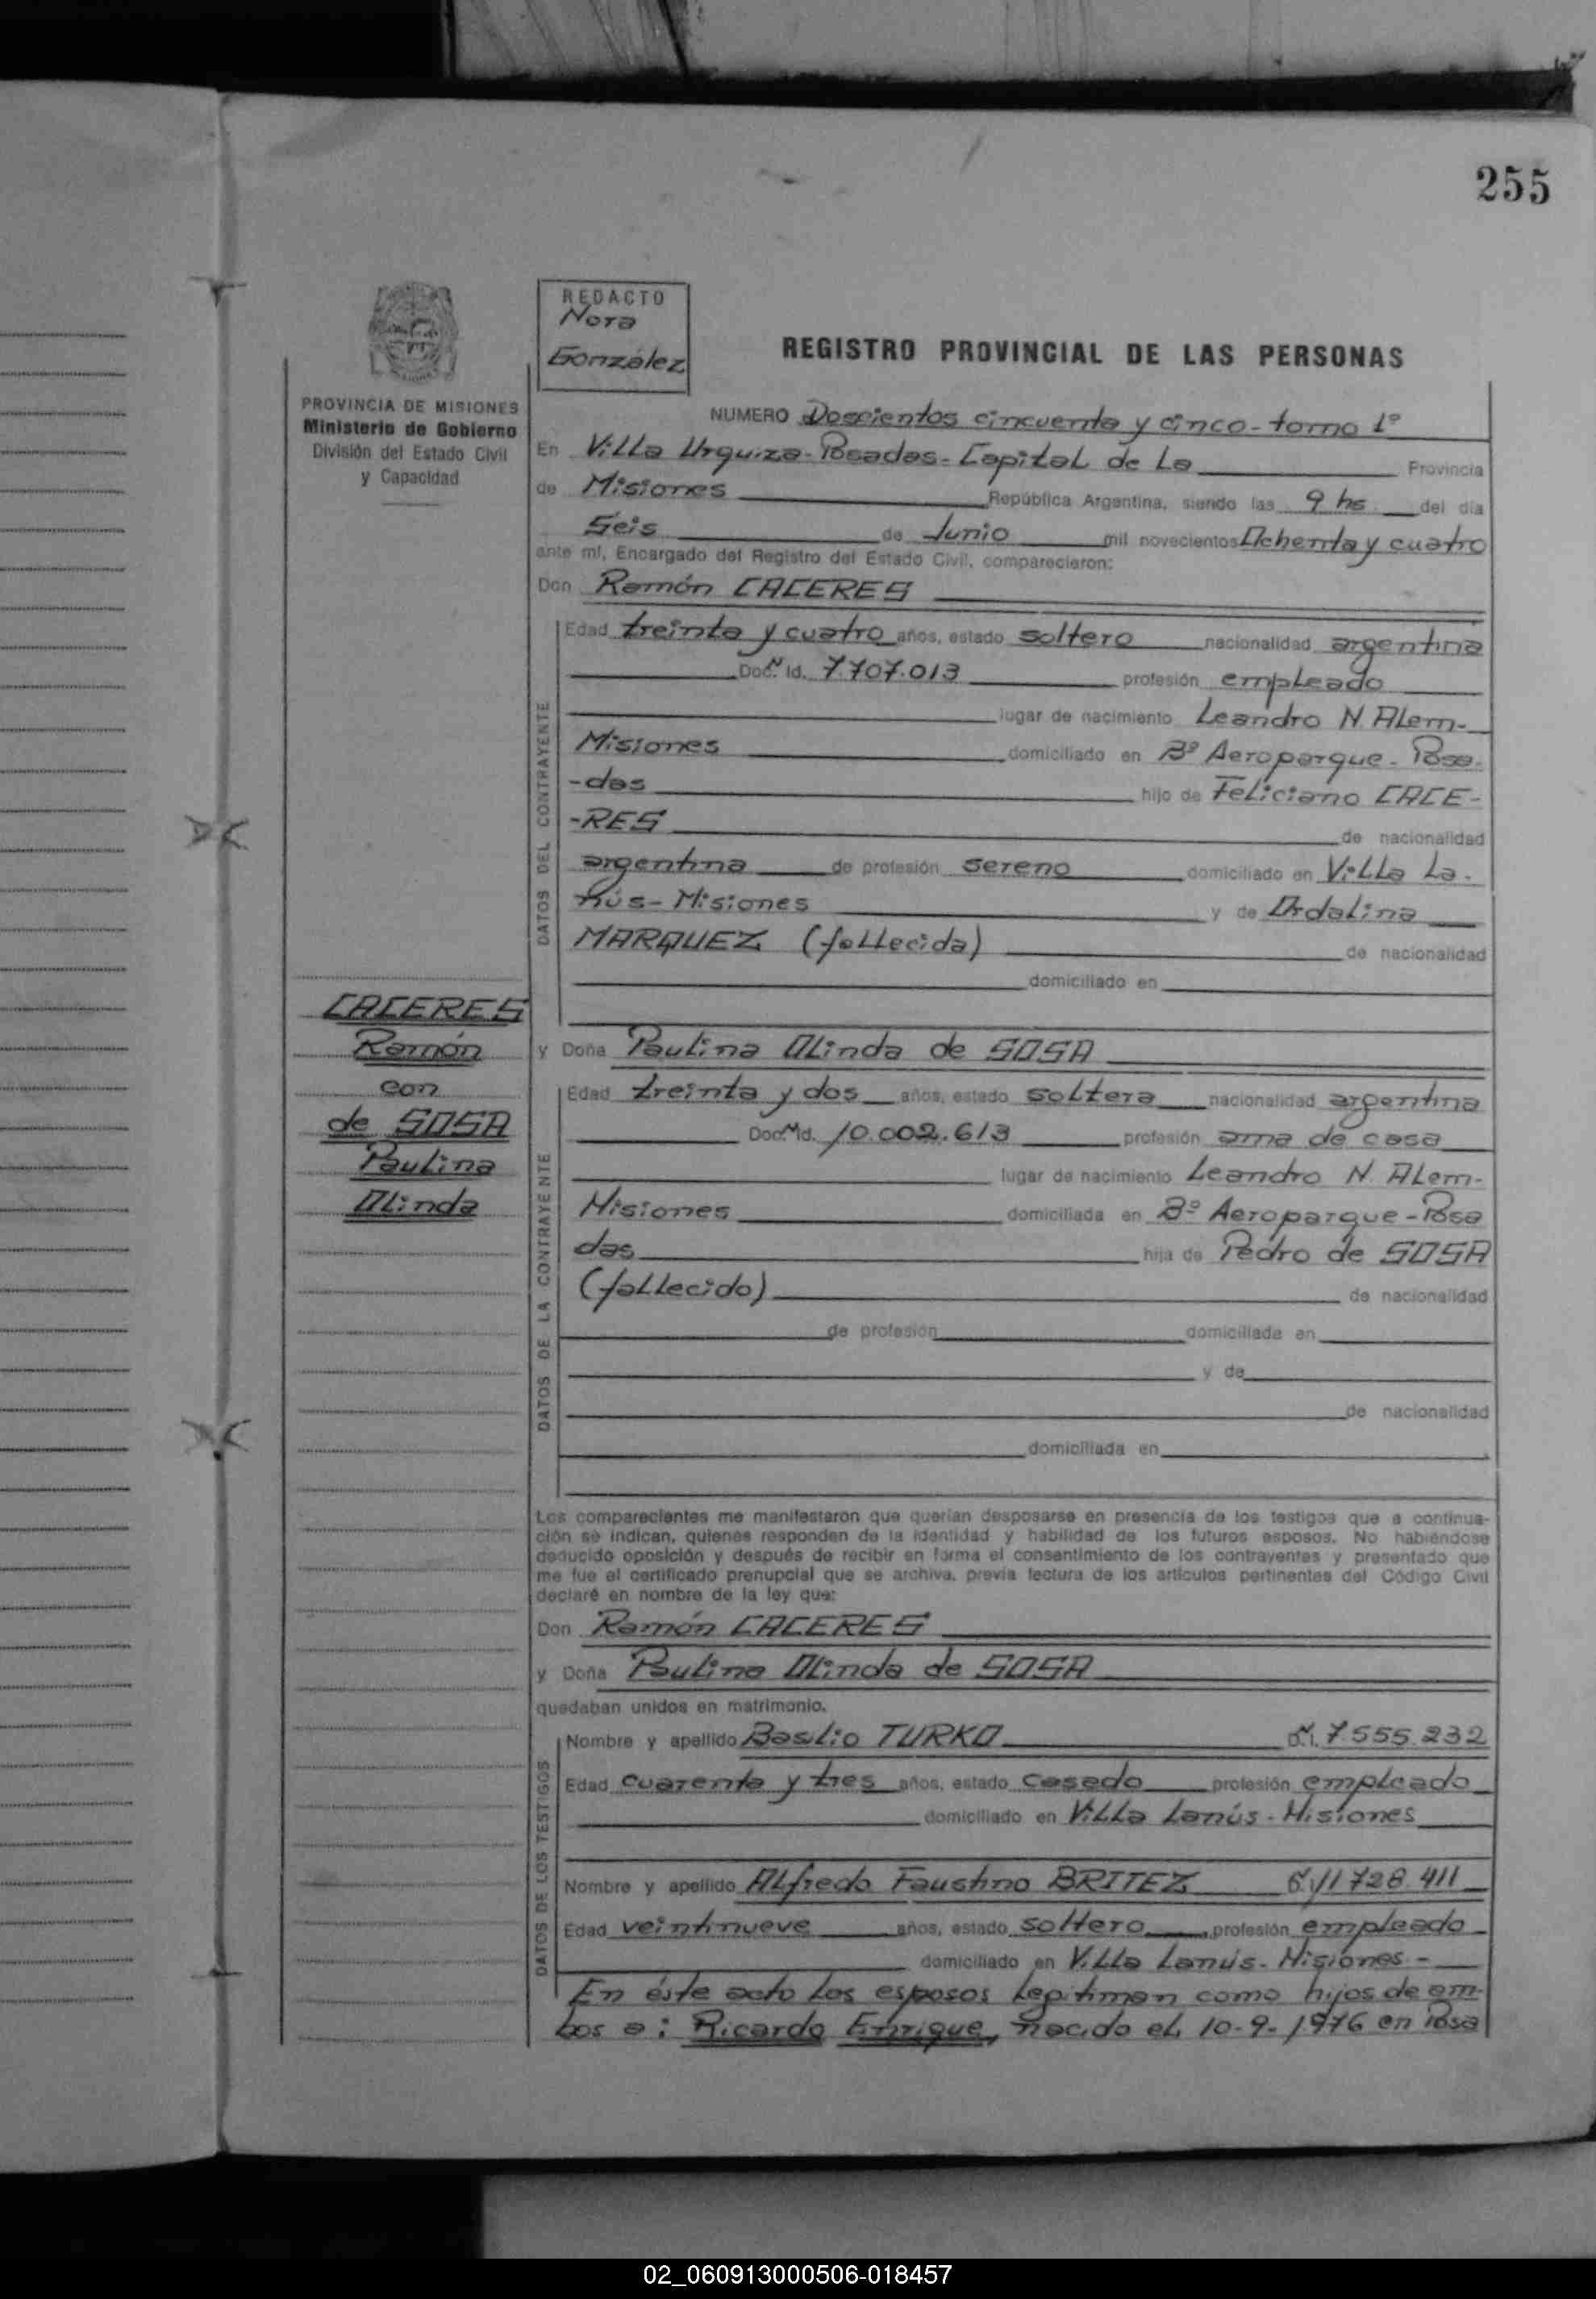 255
REDACTO
Nora
González
REGISTRO PROVINCIAL DE LAS PERSONAS
PROVINCIA DE MISIONES
Ministerio de Gobierno
División del Estado Civil
y Capacidad
NUMERO Doscientos cincuenta y cinco - tomo 1º
En Villa Urquiza - Posadas - Capital de la Provincia
de Misiones República Argentina, siendo las 9 hs del día
Seis de Junio mil novecientos Ochenta y cuatro
ante mí, Encargado del Registro del Estado Civil, comparecieron:
Don Ramón CACERES
DATOS DEL CONTRAYENTE
Edad treinta y cuatro años, estado soltero nacionalidad argentina
Doc. Id. 7.707.013 profesión empleado
lugar de nacimiento Leandro N. Alem-
Misiones domiciliado en Bº Aeroparque - Posa-
-das hijo de Feliciano CACE-
-RES de nacionalidad
argentina de profesión sereno domiciliado en Villa La-
nús - Misiones y de Ordalina
MARQUEZ (fallecida) de nacionalidad
domiciliado en
CACERES
Ramón
con
de SOSA
Paulina
Olinda
y Doña Paulina Olinda de SOSA
DATOS DE LA CONTRAYENTE
Edad treinta y dos años, estado soltera nacionalidad argentina
Doc. Id. 10.002.613 profesión ama de casa
lugar de nacimiento Leandro N. Alem-
Misiones domiciliada en Bº Aeroparque - Posa
das hija de Pedro de SOSA
(fallecido) de nacionalidad
de profesión domiciliada en
y de
de nacionalidad
domiciliada en
Los comparecientes me manifestaron que querían desposarse en presencia de los testigos que a continua-
ción se indican, quienes responden de la identidad y habilidad de los futuros esposos. No habiéndose
deducido oposición y después de recibir en forma el consentimiento de los contrayentes y presentado que
me fue el certificado prenupcial que se archiva, previa lectura de los artículos pertinentes del Código Civil
declaré en nombre de la ley que:
Don Ramón CACERES
y Doña Paulina Olinda de SOSA
quedaban unidos en matrimonio.
DATOS DE LOS TESTIGOS
Nombre y apellido Basilio TURKO 7.555.232
Edad cuarenta y tres años, estado casado profesión empleado
domiciliado en Villa Lanús - Misiones
Nombre y apellido Alfredo Faustino BRITEZ 11.728.411
Edad veintinueve años, estado soltero profesión empleado
domiciliado en Villa Lanús - Misiones -
En éste acto los esposos legitiman como hijos de am-
bos a: Ricardo Enrique, nacido el 10-9-1976 en Posa
02_060913000506-018457